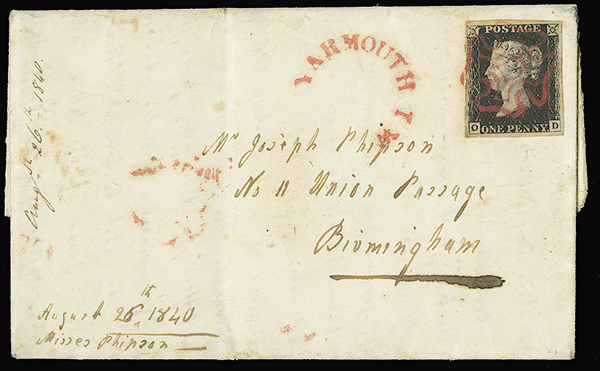 Augst 26th 1840.
YARMOUTH I W
POSTAGE
O ONE PENNY D
Mr Joseph Phipson
No 11 Union Passage
Birmingham
August 26th 1840
Misses Phipson